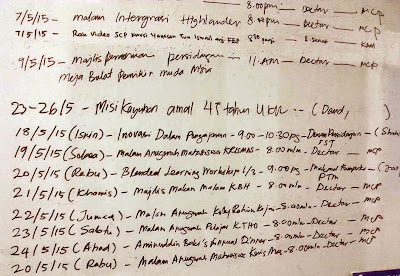 8.00pm - Dectar - MCP
7/5/15 - Malam Intergrasi Highlander 8.00pm - Dectar - MCP
7/5/15 - Rose Video SCP
9/5/15 - Majlis perasmian persidangan 11.AM - Dectar - MCP
Meja Bulat pemikir muda M'sia
23-26/5 - Misi Kayuhan amal 45 tahun UKM - (Daud, )
18/5/15 (Isnin) - Inovasi Dalam Pengajaran - 9.00 - 10.30pg - Dewan Persidangan -
FST
19/5/15 (Selasa) - Malam Anugerah Mahasiswa - 8.00mlm - Dectar - MCP
20/5/15 (Rabu) - Blended Learning Workshop 1/3 - 9.00pg - Makmal Komputer -
PTM
21/5/15 (Khamis) - Majlis Malam Malam KBH - 8.00mlm - Dectar - MCP
22/5/15 (Jumaat) - Malam Anugerah Kolej - 8.00mlm - Dectar - MCP
23/5/15 (Sabtu) - Malam Anugerah Pelajar KTHO - 8.00mlm - Dectar - MCP
24/5/15 (Ahad) - Aminuddin Baki's Annual Dinner - 8.00mlm - Dectar - MCP
20/5/15 (Rabu) - Malam Anugerah Mahasiswa - 8.00mlm - Dectar - MCP